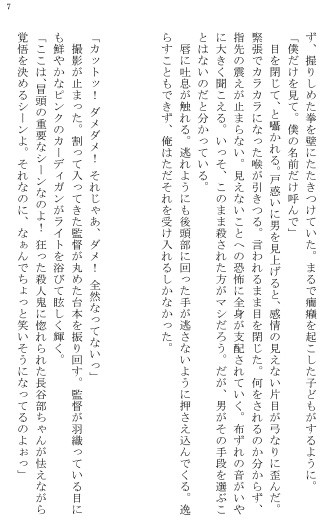 7
ず、握りしめた拳を壁にたたきつけていた。まるで癇癪を起こした子どもがするように。
「僕だけを見て。僕の名前だけ呼んで」
　目を閉じて、と囁かれる。戸惑いに男を見上げると、感情の見えない片目が弓なりに歪んだ。
緊張でカラカラになった喉が引きつる。言われるまま目を閉じた。何をされるのか分からず、
指先の震えが止まらない。見えないことへの恐怖に全身が支配されていく。布ずれの音がいや
に大きく聞こえる。いっそ、このまま殺された方がマシだろう。だが、男がその手段を選ぶこ
とはないのだと分かっている。
　唇に吐息が触れる。逃れようにも後頭部に回った手が逃さないように押さえ込んでくる。逸
らすこともできず、俺はただそれを受け入れるしかなかった。
「カットッ！　ダメダメ！　それじゃあ、ダメ！　全然なってないっ」
　撮影が止まった。割って入ってきた監督が丸めた台本を振り回す。監督が羽織っている目に
も鮮やかなピンクのカーディガンがライトを浴びて眩しく輝く。
「ここは、冒頭の重要なシーンなのよ！　狂った殺人鬼に惚れられた長谷部ちゃんが怯えながら
覚悟を決めるシーンよ。それなのに、なぁんでちょっと笑いそうになってるのよぉっ」